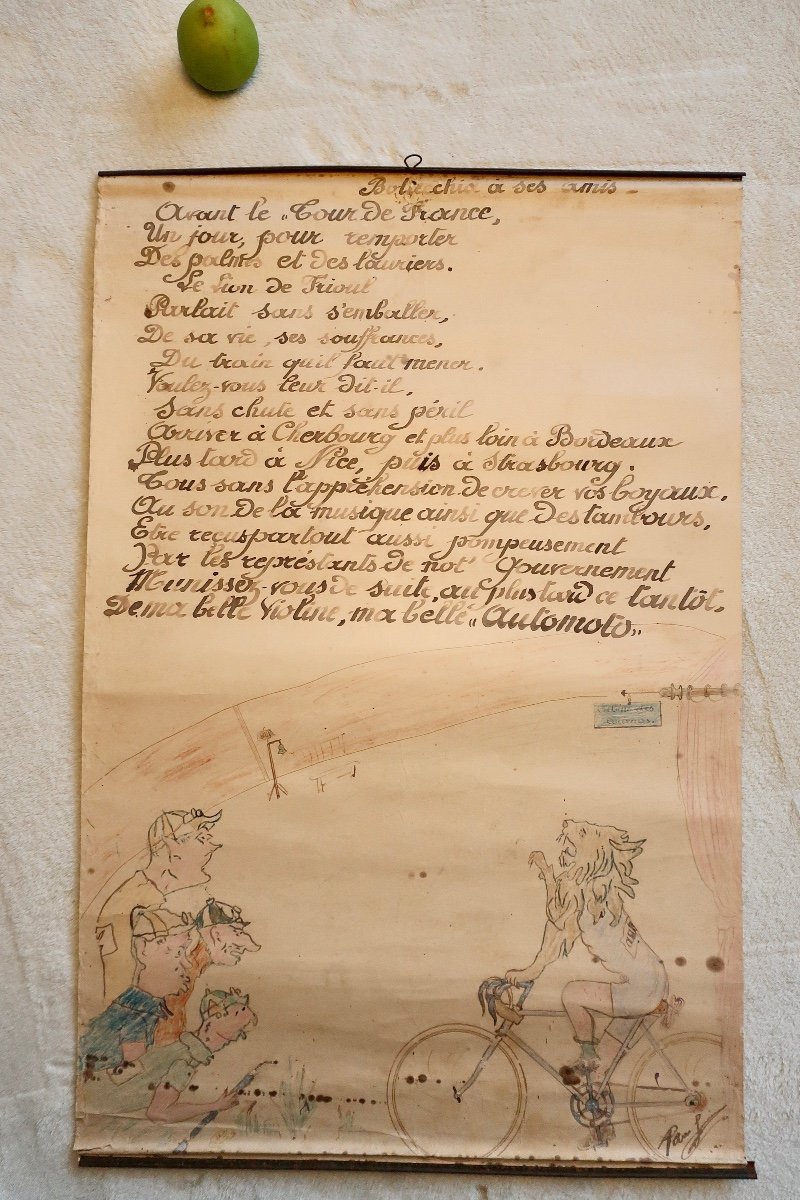 Bottecchia à ses amis -
Avant le "Tour de France,
Un jour, pour remporter
Des palmes et des lauriers.
Le Lion de Frioul
Parlait sans s'emballer,
De sa vie, ses souffrances,
Du train qu'il fault mener.
Voulez-vous leur dit-il,
Sans chute et sans péril
Arriver à Cherbourg et plus loin à Bordeaux
Plus tard à Nice, puis à Strasbourg.
Tous sans l'appréhension de crever vos boyaux.
Au son de la musique ainsi que des tambours,
Etre reçus partout aussi pompeusement
Par les représtants de not' Gouvernement
Munissez-vous de suite, au plus tard ce tantôt,
De ma belle Violine, ma belle "Automoto"